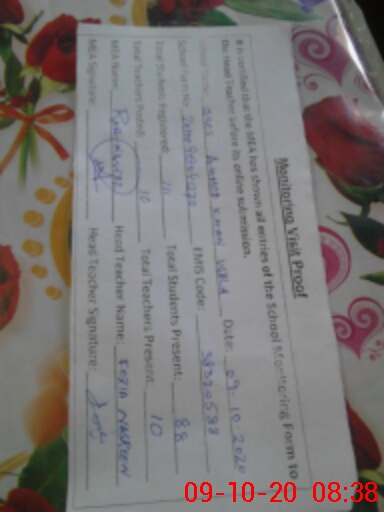 Monitoring Visit Proof
It is certified that the MEA has shown all entries of the School Monitoring Form to
the Head Teacher before its online submission.
School Name: GGES KHAN Date: 09-10-2020
School Form No: EMIS Code: 38320588
Total Students Registered: 111 Total Students Present: 88
Total Teachers Posted: 10 Total Teachers Present: 10
MEA Name: Head Teacher Name: FOZIA NASREEN
MEA Signature: Head Teacher Signature:
09-10-20 08:38